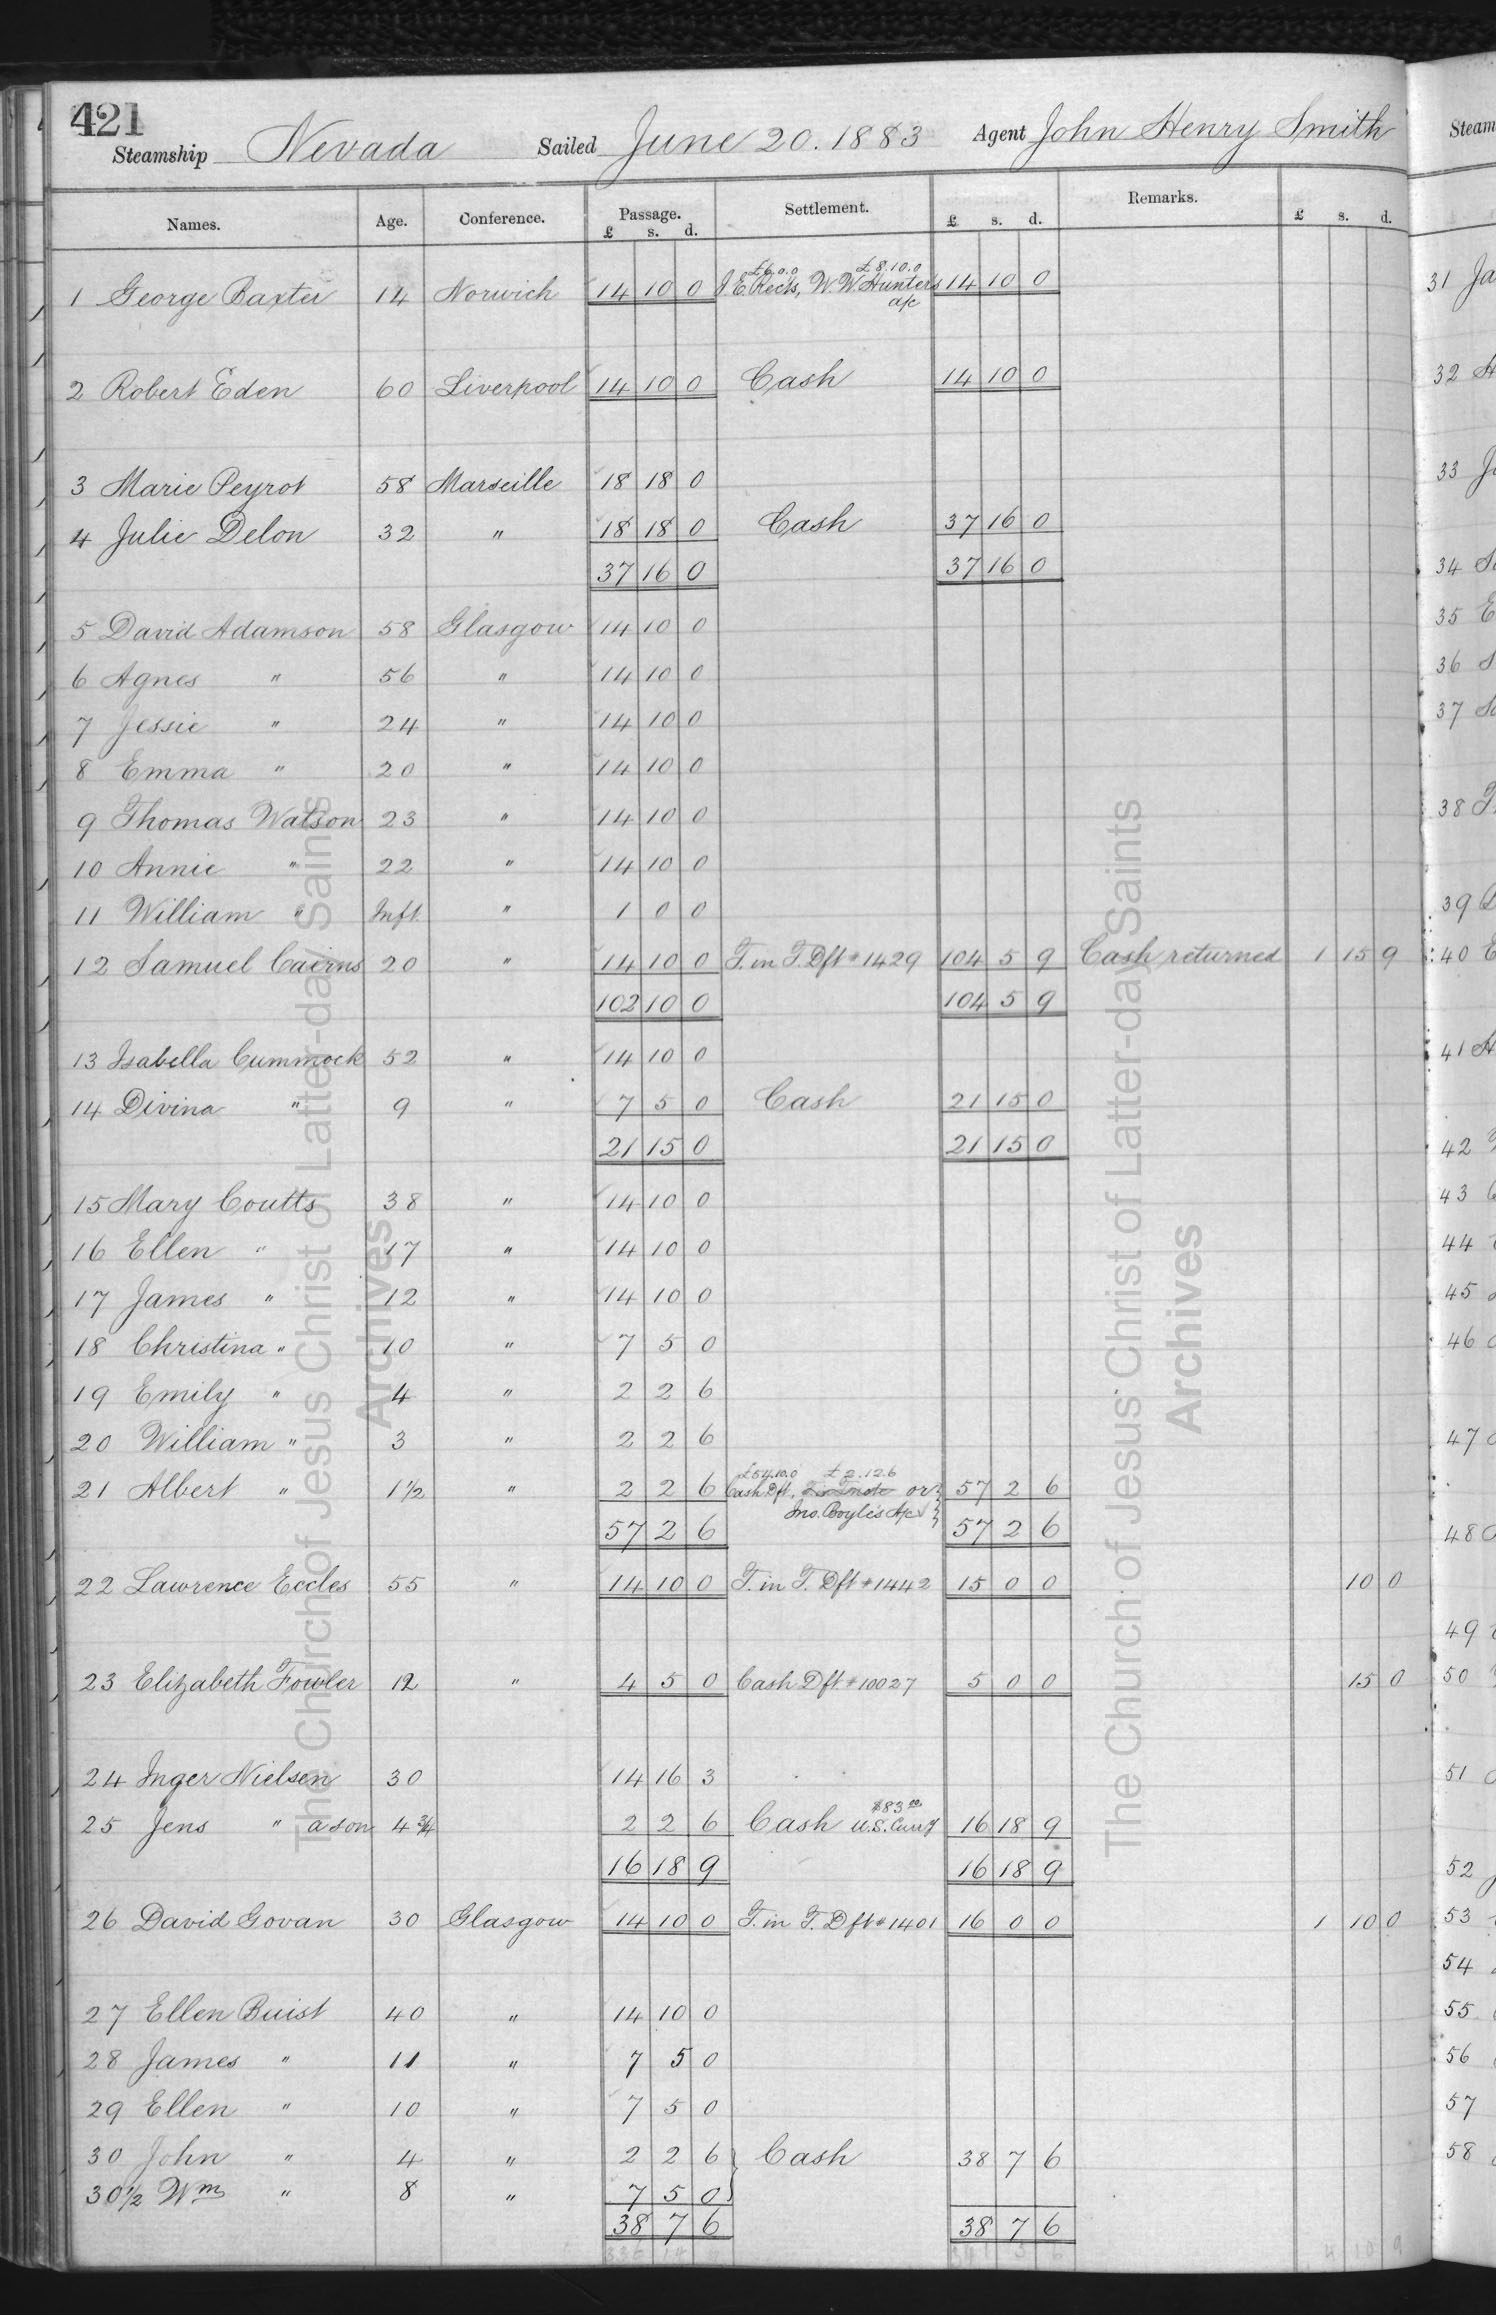 421
Steamship Nevada Sailed June 20. 1883 Agent John Henry Smith
Names. Age. Conference. Passage. £ s. d. Settlement. £ s. d. Remarks. £ s. d.
£6.0.0 £8.10.0
1 George Baxter 14 Norwich 14 10 0 J. E. Recks, W. W. Hunters a/c 14 10 0
2 Robert Eden 60 Liverpool 14 10 0 Cash 14 10 0
3 Marie Peyrot 58 Marseille 18 18 0
4 Julie Delon 32 " 18 18 0 Cash 37 16 0
37 16 0 37 16 0
5 David Adamson 58 Glasgow 14 10 0
6 Agnes " 56 " 14 10 0
7 Jessie " 24 " 14 10 0
8 Emma " 20 " 14 10 0
9 Thomas Watson 23 " 14 10 0
10 Annie " 22 " 14 10 0
11 William " Inft. " 1 0 0
12 Samuel Cairns 20 " 14 10 0 T. in T. Dft # 1429 104 5 9 Cash returned 1 15 9
102 10 0 104 5 9
13 Isabella Cummock 52 " 14 10 0
14 Divina " 9 " 7 5 0 Cash 21 15 0
21 15 0 21 15 0
15 Mary Coutts 38 " 14 10 0
16 Ellen " 17 " 14 10 0
17 James " 12 " 14 10 0
18 Christina " 10 " 7 5 0
19 Emily " 4 " 2 2 6
20 William " 3 " 2 2 6
£54.10.0 £2.12.6
21 Albert " 1½ " 2 2 6 Cash Dft. or 57 2 6
57 2 6 Jno. Boyle's A/c 57 2 6
22 Lawrence Eccles 55 " 14 10 0 T. in T. Dft # 1442 15 0 0 10 0
23 Elizabeth Fowler 12 " 4 5 0 Cash Dft # 10027 5 0 0 15 0
24 Inger Nielsen 30 14 16 3
25 Jens " a son 4¾ 2 2 6 Cash $83 00 U.S. Curr'y 16 18 9
16 18 9 16 18 9
26 David Govan 30 Glasgow 14 10 0 T. in T. Dft # 1401 16 0 0 1 10 0
27 Ellen Buist 40 " 14 10 0
28 James " 11 " 7 5 0
29 Ellen " 10 " 7 5 0
30 John " 4 " 2 2 6 Cash 38 7 6
30½ Wm " 8 " 7 5 0
38 7 6 38 7 6
4 10 9
Steam
31 Ja
32
33
34
35
36
37
38
39
40
41
42
43
44
45
46
47
48
49
50
51
52
53
54
55
56
57
58
The Church of Jesus Christ of Latter-day Saints
Archives
The Church of Jesus Christ of Latter-day Saints
Archives